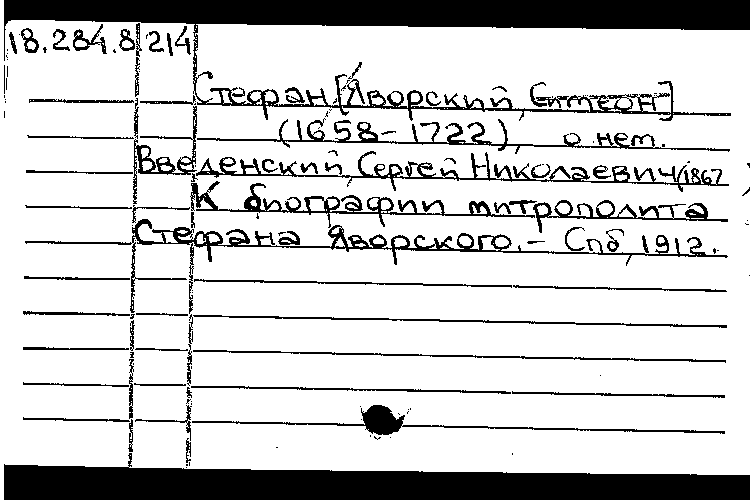 18.284.8 214
Стефан [Яворский, Симеон]
(1658-1722), о нем.
Введенский, Сергей Николаевич (1867
К биографии митрополита
Стефана Яворского. - Спб, 1912.